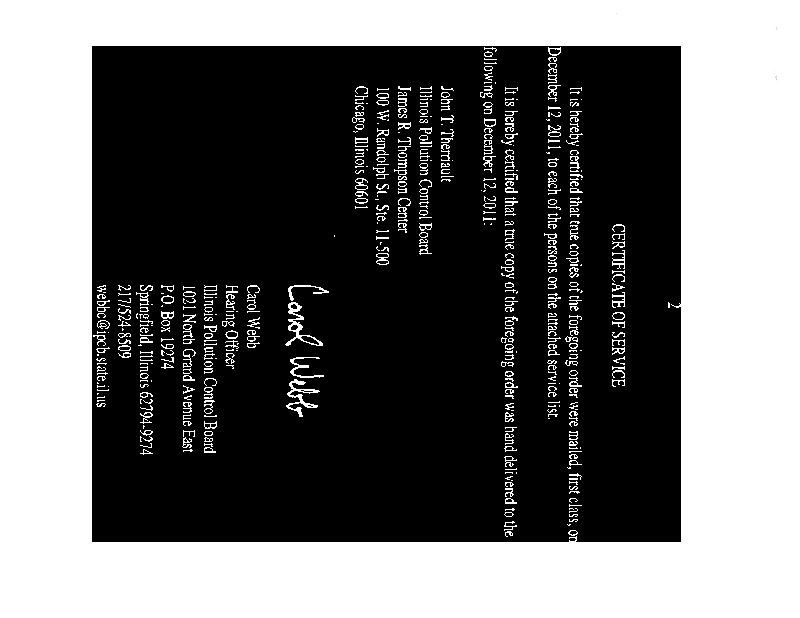 2
CERTIFICATE OF SERVICE
It is hereby certified that true copies of the foregoing order were mailed, first class, on
December 12, 2011, to each of the persons on the attached service list.
It is hereby certified that a true copy of the foregoing order was hand delivered to the
following on December 12, 2011:
John T. Therriault
Illinois Pollution Control Board
James R. Thompson Center
100 W. Randolph St., Ste. 11-500
Chicago, Illinois 60601
Carol Webb
Carol Webb
Hearing Officer
Illinois Pollution Control Board
1021 North Grand Avenue East
P.O. Box 19274
Springfield, Illinois 62794-9274
217/524-8509
webbc@ipcb.state.il.us